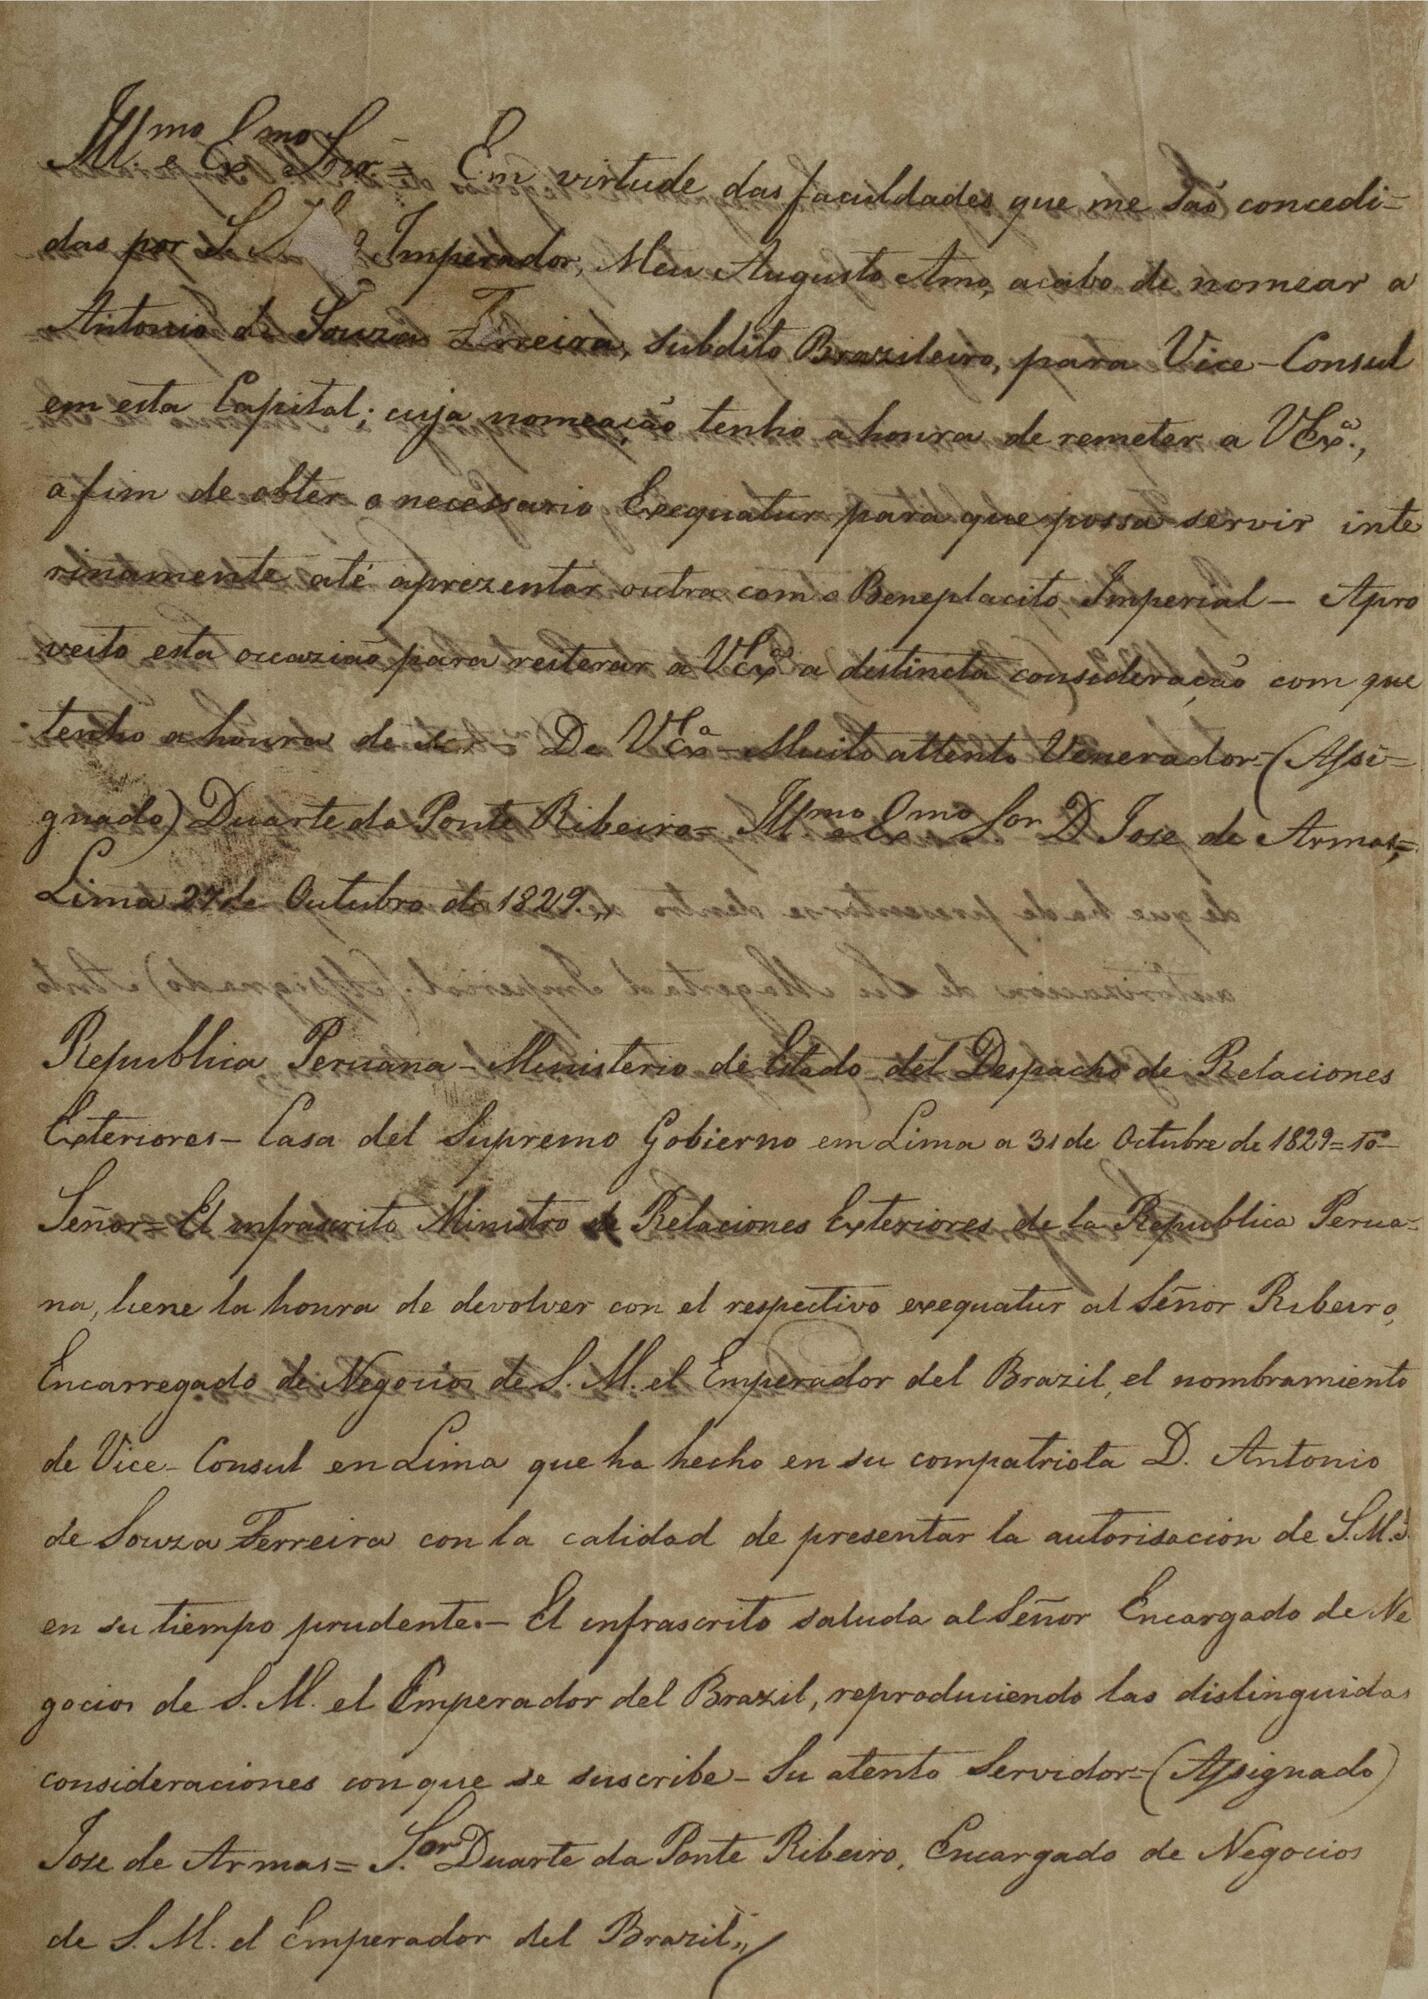 Ill.mo e Ex.mo Snr.= Em virtude das faculdades que me são concedi=
das por S. Imperador, Meu Augusto Amo, acabo de nomear a
Antonio de Souza Ferreira, subdito Brazileiro, para Vice-Consul
em esta Capital; cuja nomeação tenho a honra de remeter a VExª.,
a fim de obter o necessario Exequatur para que possa servir inte
rinamente até aprezentar outra com o Beneplacito Imperial- Apro
veito esta occazião para reiterar a VExª a distincta consideração com que
tenho a honra de ser - De VExª - Muito attento Venerador=(Assi=
gnado) Duarte da Ponte Ribeiro= Ill.mo e Exmo Sor D Jose de Armas=
Lima 27 de Outubro de 1829.,,
Republica Peruana - Ministerio de Estado del Despacho de Relaciones
Exteriores- Casa del Supremo Gobierno em Lima a 31 de Octubre de 1829= 10º-
Señor= El infrascrito Ministro de Relaciones Exteriores de la Republica Perua=
na, tiene la honra de devolver con el respectivo exequatur al Señor Ribeiro,
Encarregado de Negocios de S. M. el Emperador del Brazil, el nombramiento
de Vice-Consul en Lima que ha hecho en su compatriota D. Antonio
de Souza Ferreira con la calidad de presentar la autorisacion de S.M.
en su tiempo prudente.- El infrascrito saluda al Señor Encargado de Ne
gocios de S. M. el Emperador del Brazil, reproduciendo las distinguidas
consideraciones con que se suscribe- Su atento Servidor=(Assignado)
Jose de Armas= S.or Duarte da Ponte Ribeiro, Encargado de Negocios
de S. M. el Emperador del Brazil,,